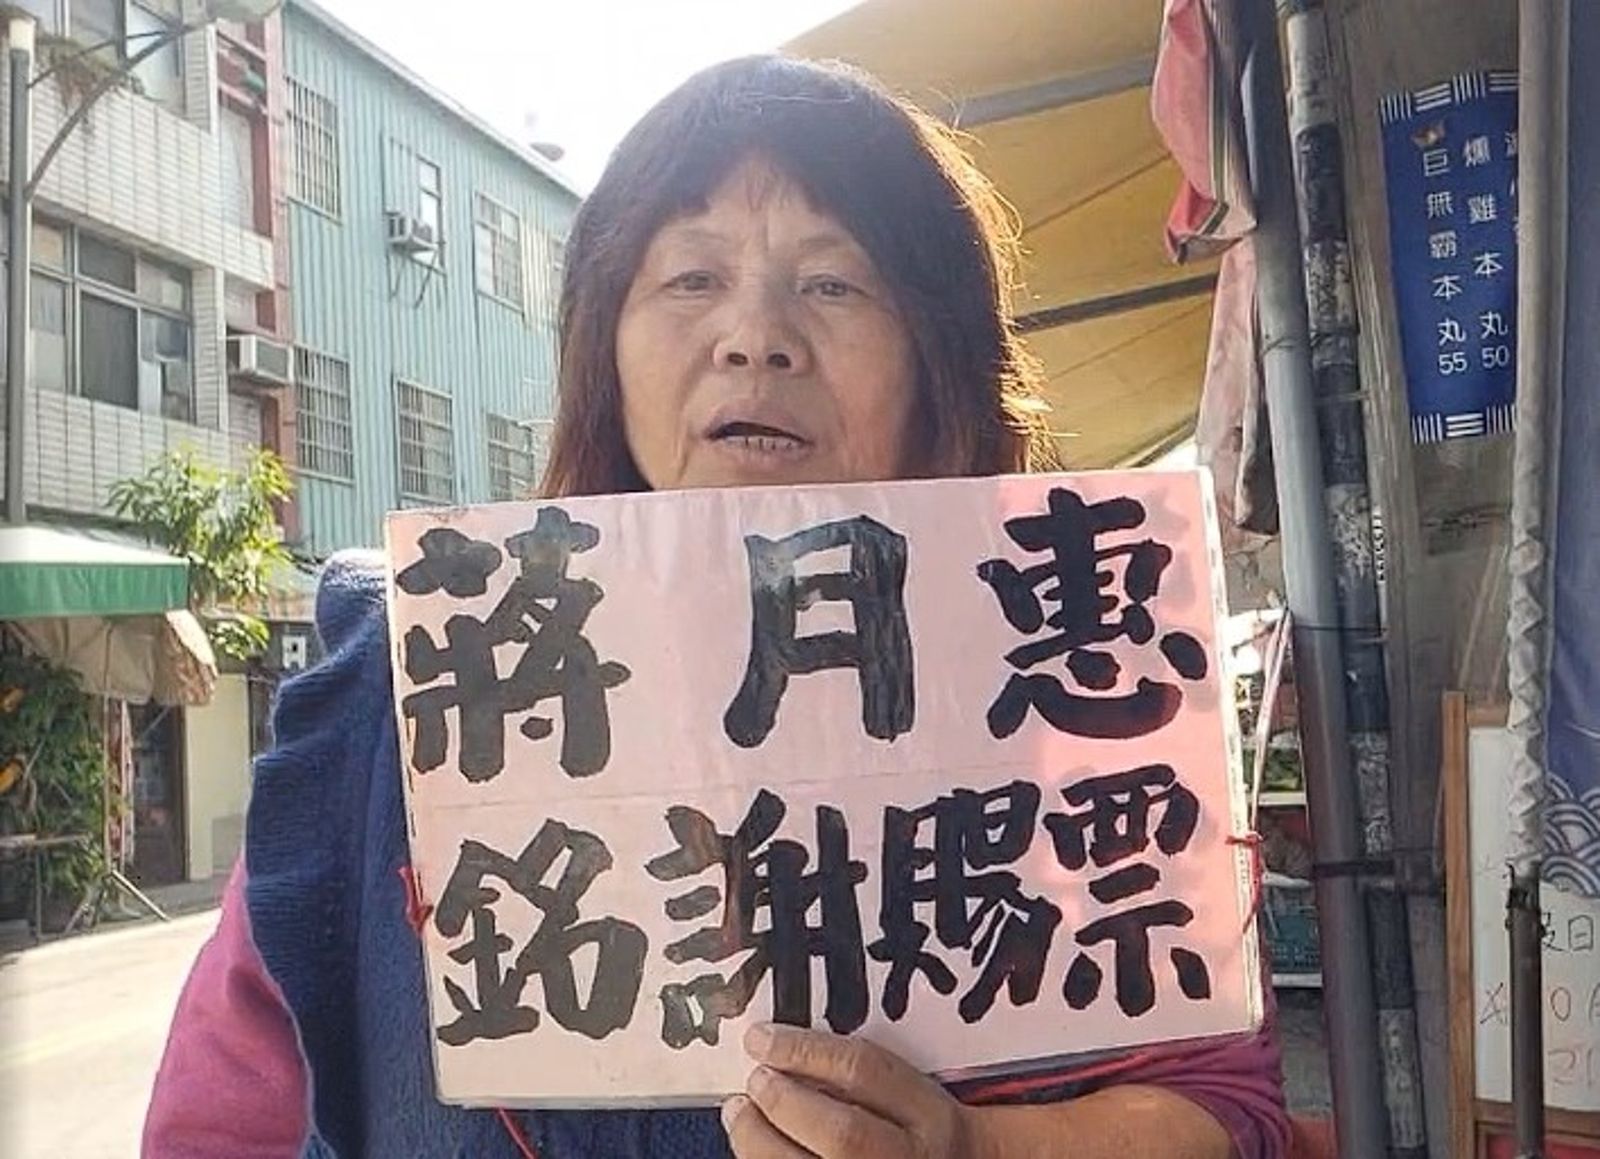 蔣月惠
銘謝賜票
巨無霸本丸
55
爆雞本丸
50